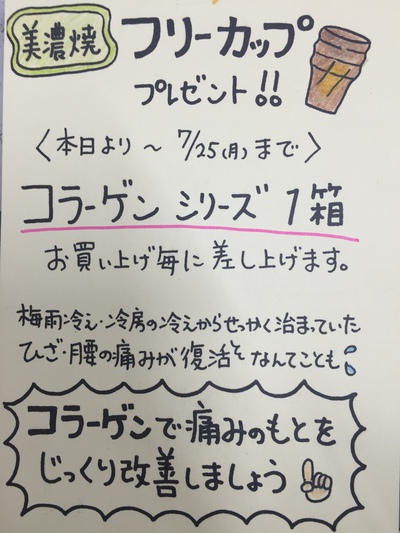 美濃焼
フリーカップ
プレゼント!!
〈本日より～7/25(月)まで〉
コラーゲン シリーズ 1箱
お買い上げ毎に差し上げます。
梅雨冷え・冷房の冷えからせっかく治まっていた
ひざ・腰の痛みが復活となんてことも
コラーゲンで痛みのもとを
じっくり改善しましょう